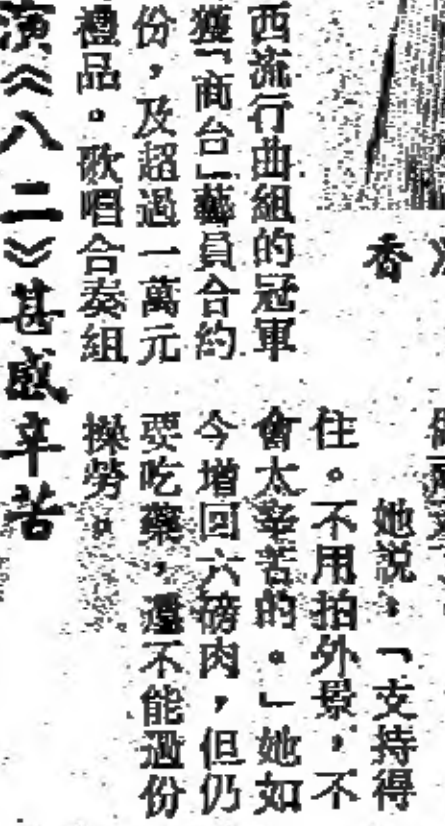 香
西流行曲組的冠軍
獲「商台」藝員合約
份，及超過一萬元
禮品。歌唱合奏組
演《八二》甚感辛苦
她說，「支持得
住。不用拍外景，不
會太辛苦的。」她如
今增回六磅肉，但仍
要吃藥，還不能過份
操勞。